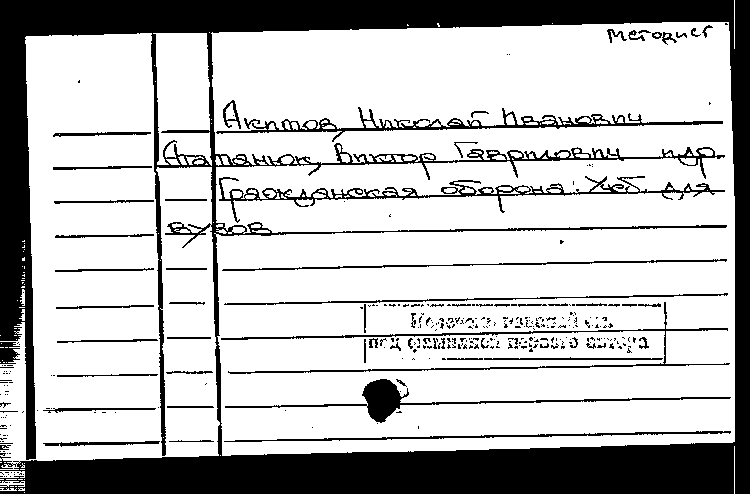 методист
Акимов, Николай Иванович
Атаманюк, Виктор Гаврилович и др.
Гражданская оборона: Учеб. для
вузов
под фамилией первого автора